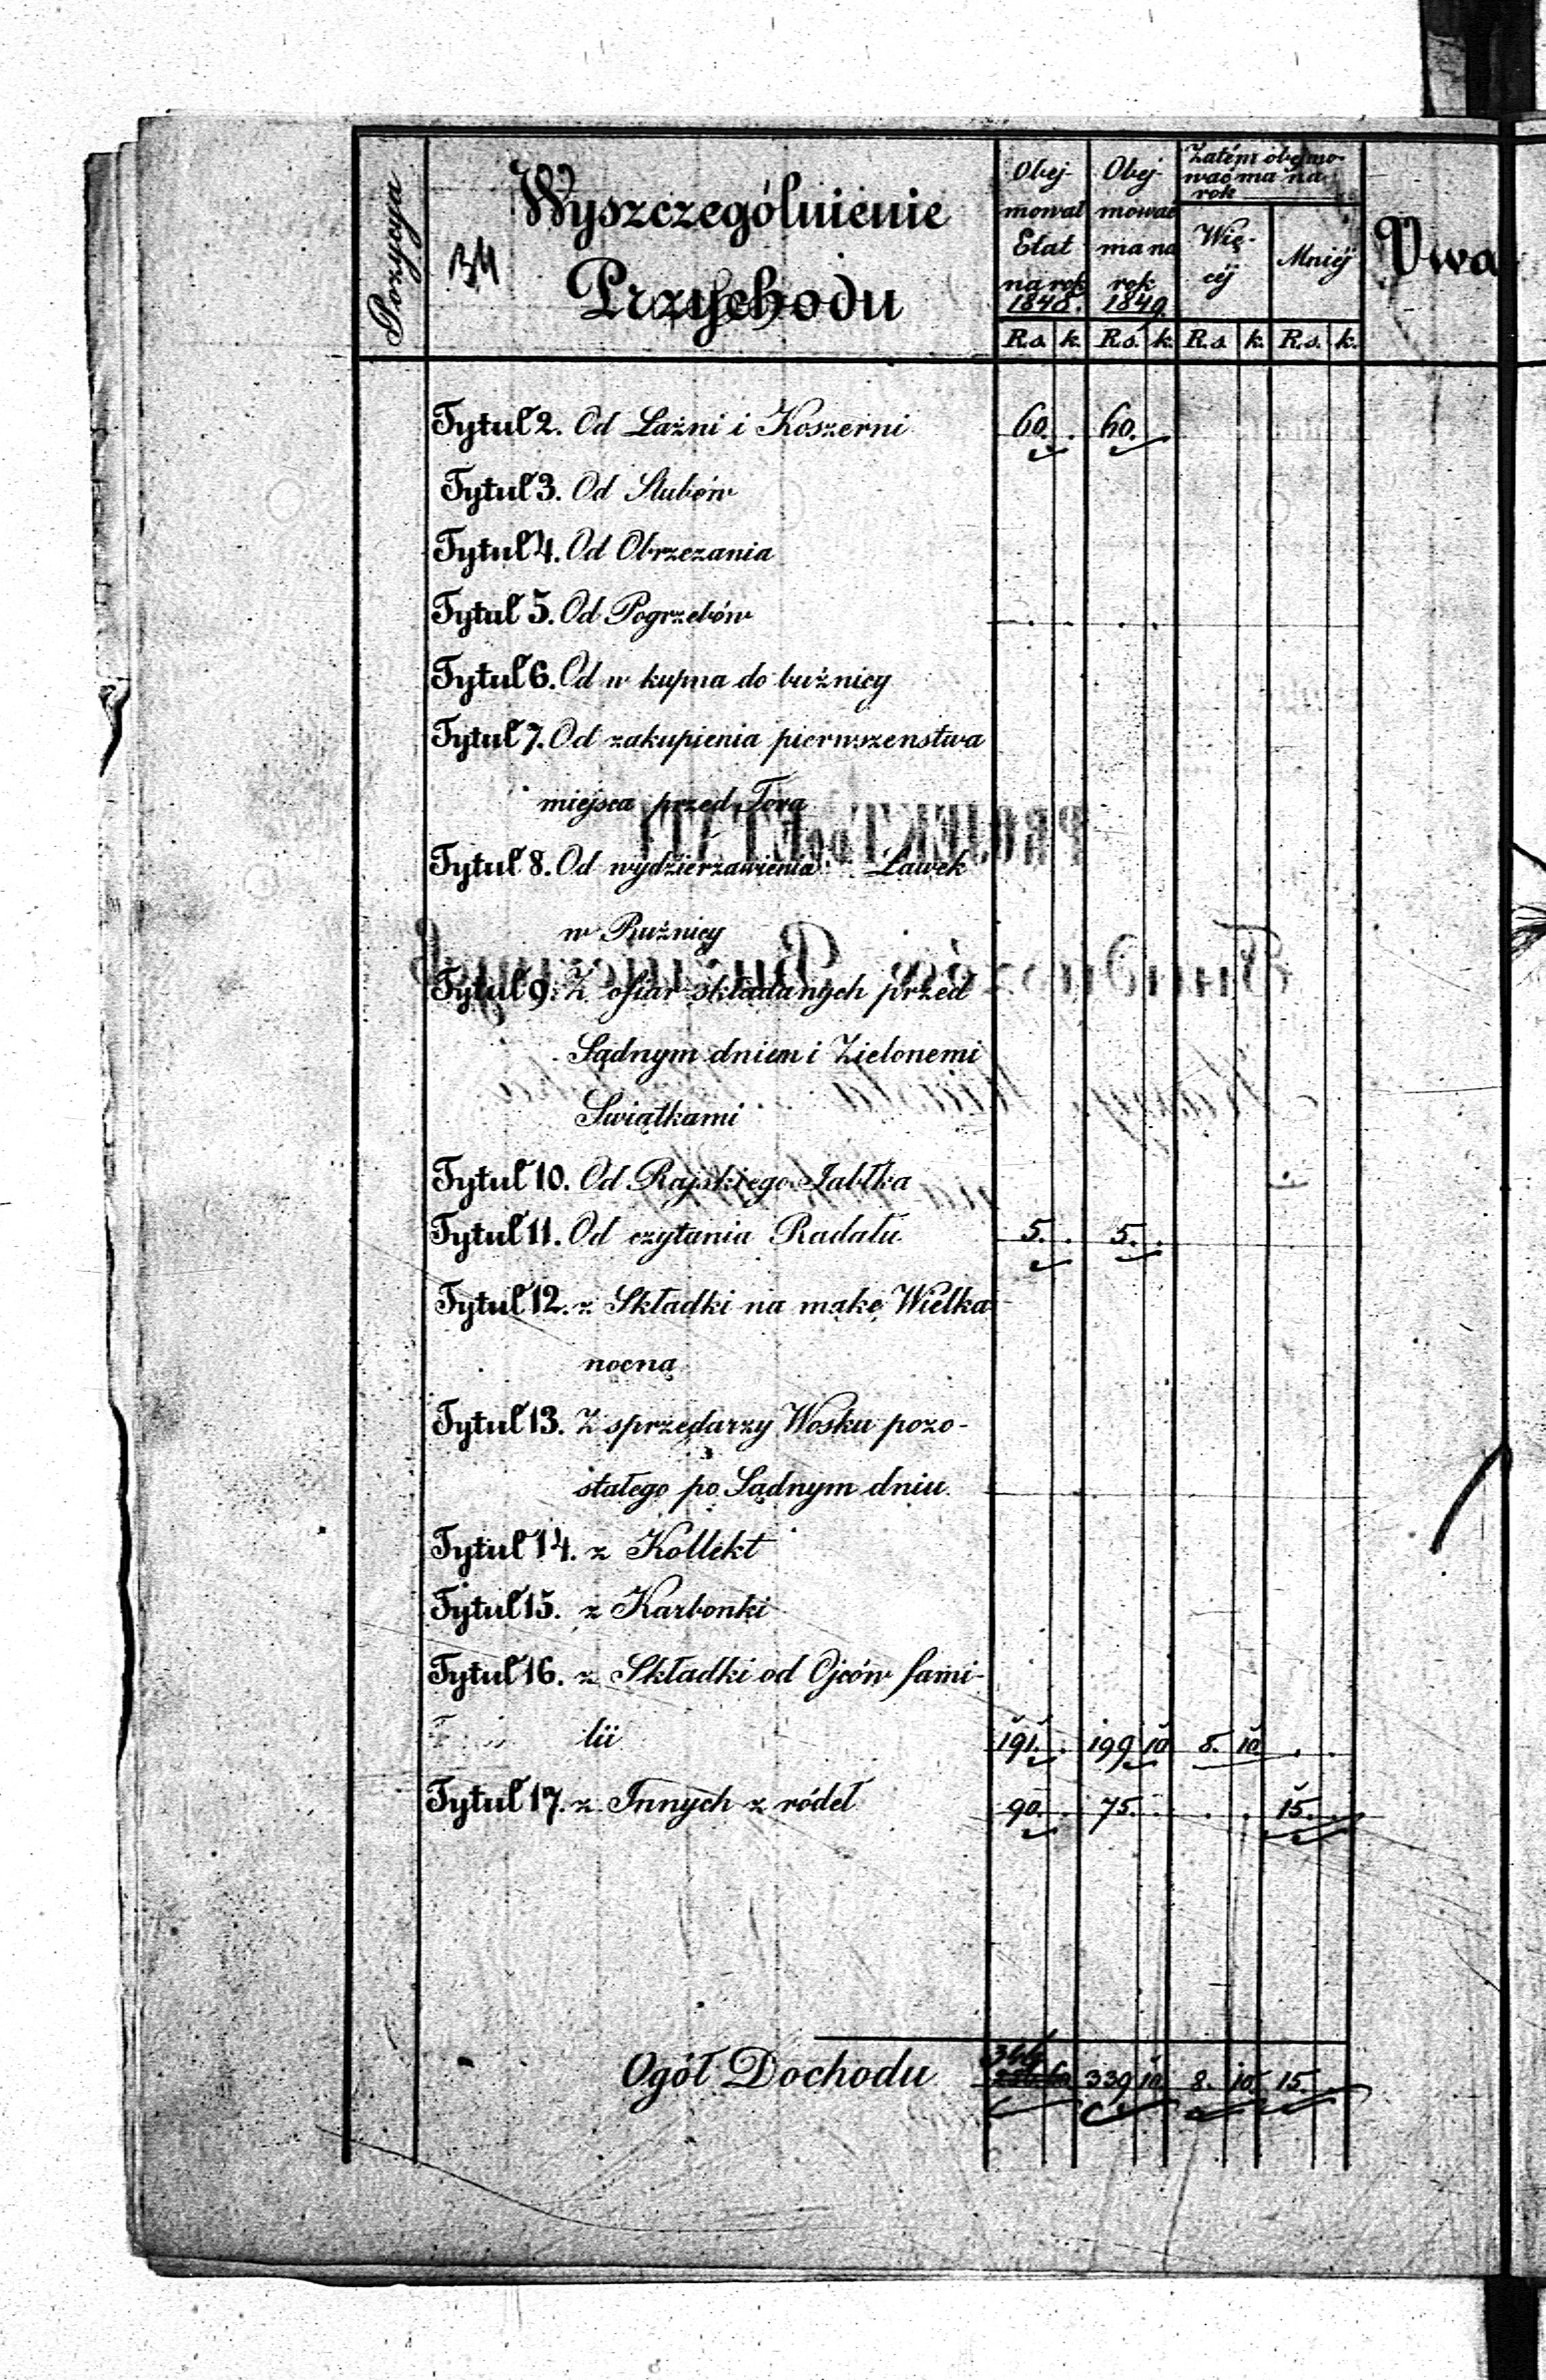 Pozycya
34
Wyszczególnienie
Przychodu
Obej-
mował
Etat
na rok
1848.
Obej-
mować
ma na
rok
1849.
Zatém obejmo-
wać ma na
rok
Wię-
céj
Mniéj
Uwa
R.s. k. R.s. k. R.s. k. R.s. k.
Tytuł 2. Od Łaźni i Koszerni 60. . 60. .
Tytuł 3. Od Slubów
Tytuł 4. Od Obrzezania
Tytuł 5. Od Pogrzebów . . . .
Tytuł 6. Od w kupna do bużnicy
Tytuł 7. Od zakupienia pierwszenstwa
miejsca przed Torą
Tytuł 8. Od wydzierzawienia Ławek
w Bużnicy
Tytuł 9. Z ofiar składanych przed
Sądnym dniem i Zielonemi
Swiątkami
Tytuł 10. Od Rajskiego Jabłka
Tytuł 11. Od czytania Radału 5. . 5. .
Tytuł 12. z Składki na mąkę Wielka
nocną
Tytuł 13. Z sprzedarzy Wosku pozo-
stałego po Sądnym dniu
Tytuł 14. z Kollekt
Tytuł 15. z Karbonki
Tytuł 16. z Składki od Ojców fami-
lii 191. . 199 10 8. 10 . .
Tytuł 17. z Innych z ródeł 90. . 75. . . . 15. .
Ogół Dochodu 346 339 10 8. 10. 15.